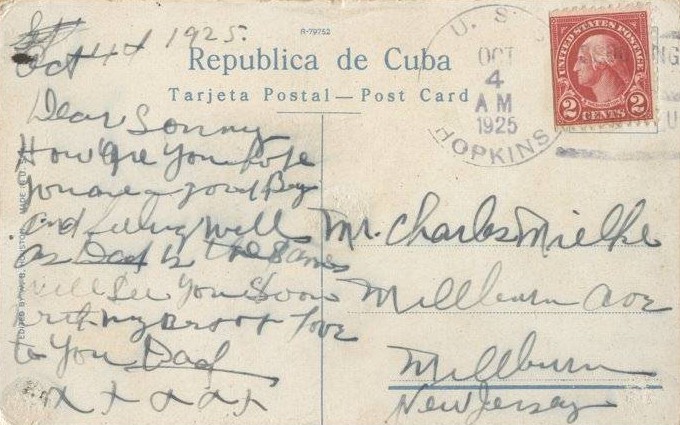 Oct 4th 1925.
R-79752
Republica de Cuba
Tarjeta Postal — Post Card
Dear Sonny
How are you hope
you are a good Boy
and feeling well
as Dad is the same
will see you soon
with my love
to you Dad
x x x x x
Mr. Charles Mielke
Millburn Ave
Millburn
New Jersey
U. S.
OCT
4
AM
1925
HOPKINS
UNITED STATES POSTAGE
2 CENTS 2